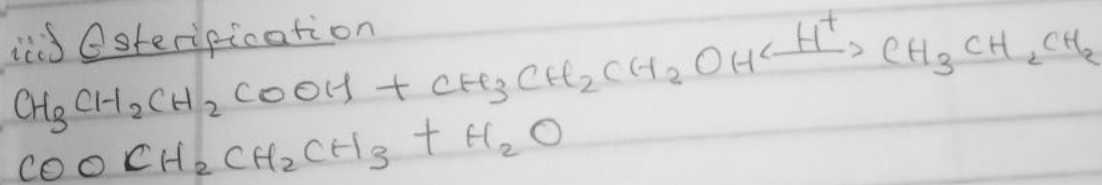 iii) Esterification
CH₃CH₂CH₂COOH + CH₃CH₂CH₂OH <—H⁺—> CH₃CH₂CH₂
COOCH₂CH₂CH₃ + H₂O